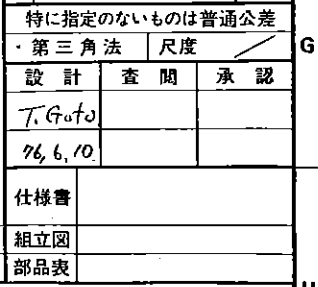 特に指定のないものは普通公差
・第三角法 尺度 G
設計 査閲 承認
T. Goto
76, 6, 10
仕様書
組立図
部品表